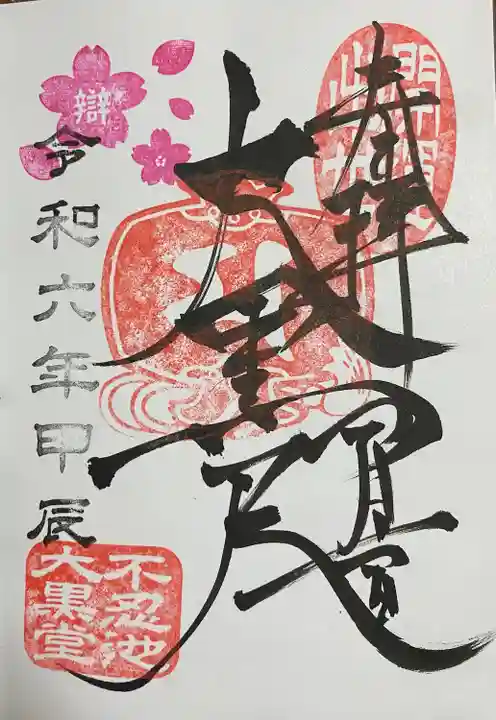 奉拝
大黒天
辯
令和六年甲辰
不忍池
大黒堂